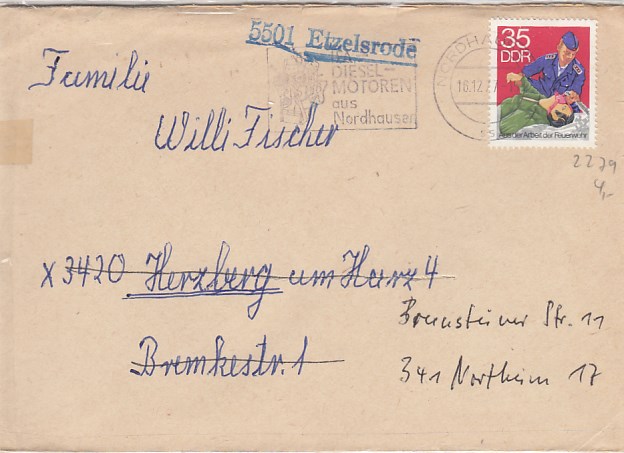 5501 Etzelsrode
DIESEL-
MOTOREN
aus
Nordhausen
NORDHA
16.12.77
35
DDR
Aus der Arbeit der Feuerwehr
2279
4,-
Familie
Willi Fischer
x 3420 Herzberg am Harz 4
Bremkestr. 1
Breensteiner Str. 11
341 Northeim 17